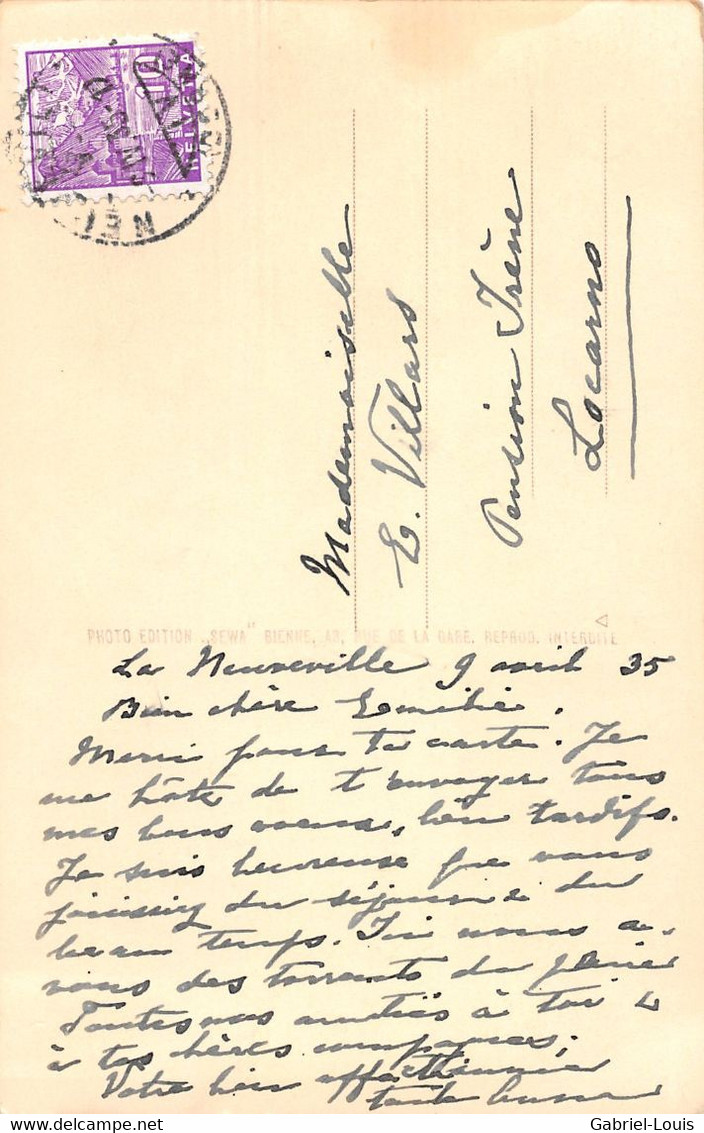 10
HELVETIA
Mademoiselle
E. Villars
Pension Irène
Locarno
PHOTO EDITION „SEWA" BIENNE, 42, RUE DE LA GARE. REPROD. INTERDITE
La Neuveville 9 avril 35
Bien chère Emilie.
Merci pour ta carte. Je
me hâte de t'envoyer tous
mes bons voeux, bien tardifs.
Je suis heureuse que vous
jouissiez du séjour & du
beau temps. Ici nous a-
vons des torrents de pluie
Toutes nos amitiés à toi &
à tes chères compagnes,
Votre bien affectionnée
tante
Gabriel-Louis